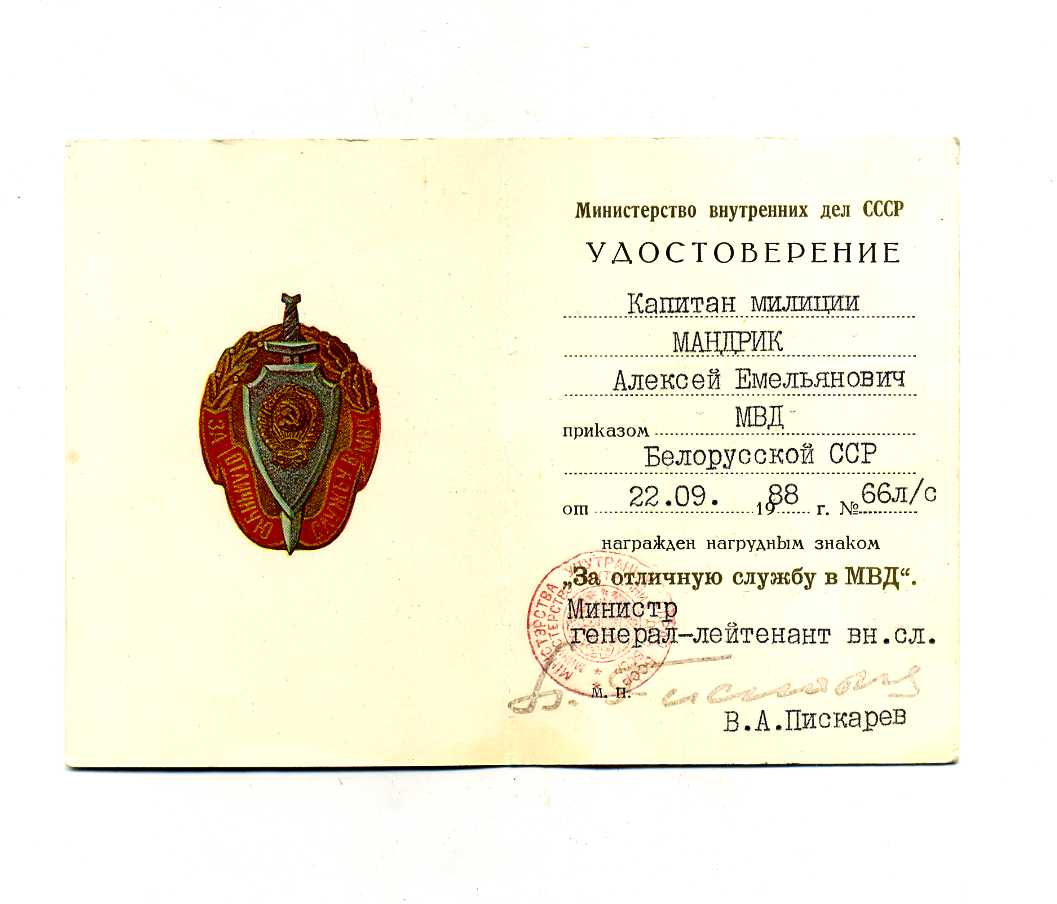 ЗА ОТЛИЧНУЮ СЛУЖБУ В МВД
Министерство внутренних дел СССР
УДОСТОВЕРЕНИЕ
Капитан милиции
МАНДРИК
Алексей Емельянович
приказом МВД
Белорусской ССР
от 22.09. 1988 г. № 66л/с
награжден нагрудным знаком
„За отличную службу в МВД“.
Министр
генерал-лейтенант вн.сл.
м. п.
В.А.Пискарев
МІНІСТЭРСТВА УНУТРАНЫХ